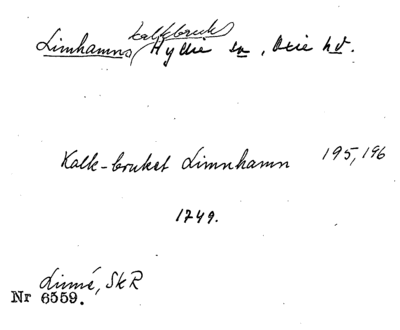 Limhamns kalkbruk, Hyllie sn, Oxie hd.
Kalk-bruket Limnhamn 195, 196
1749.
Linné, SkR
Nr 6559.